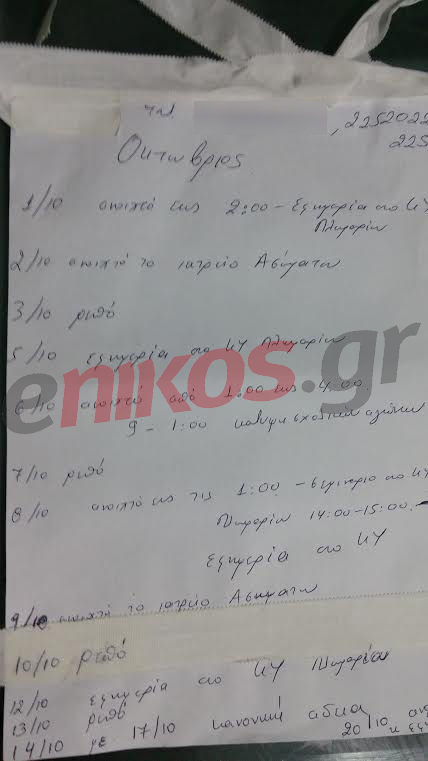 τηλ. , 2252022
225
Οκτωβριος
1/10 ανοιχτό εως 2:00 - Εφημερία στο ΚΥ
Πλωμαρίου
2/10 ανοιχτό το ιατρείο Ασωματου
3/10 ρεπό
5/10 εφημερία στο ΚΥ Πλωμαρίου
enikos.gr
6/10 ανοιχτό από 1.00 εως 4.00
9 - 1:00 καλυψη σχολικών αγώνων
7/10 ρεπό
8/10 ανοιχτό εως τις 1:00 - σεμιναριο στο ΚΥ
Πλωμαρίου 14:00-15:00.-
εφημερία στο ΚΥ
9/10 ανοιχτό το ιατρείο Ασωματου
10/10 ρεπό
12/10 εφημερία στο ΚΥ Πλωμαρίου
13/10 ρεπό
14/10 με 17/10 κανονική αδεια
20/10